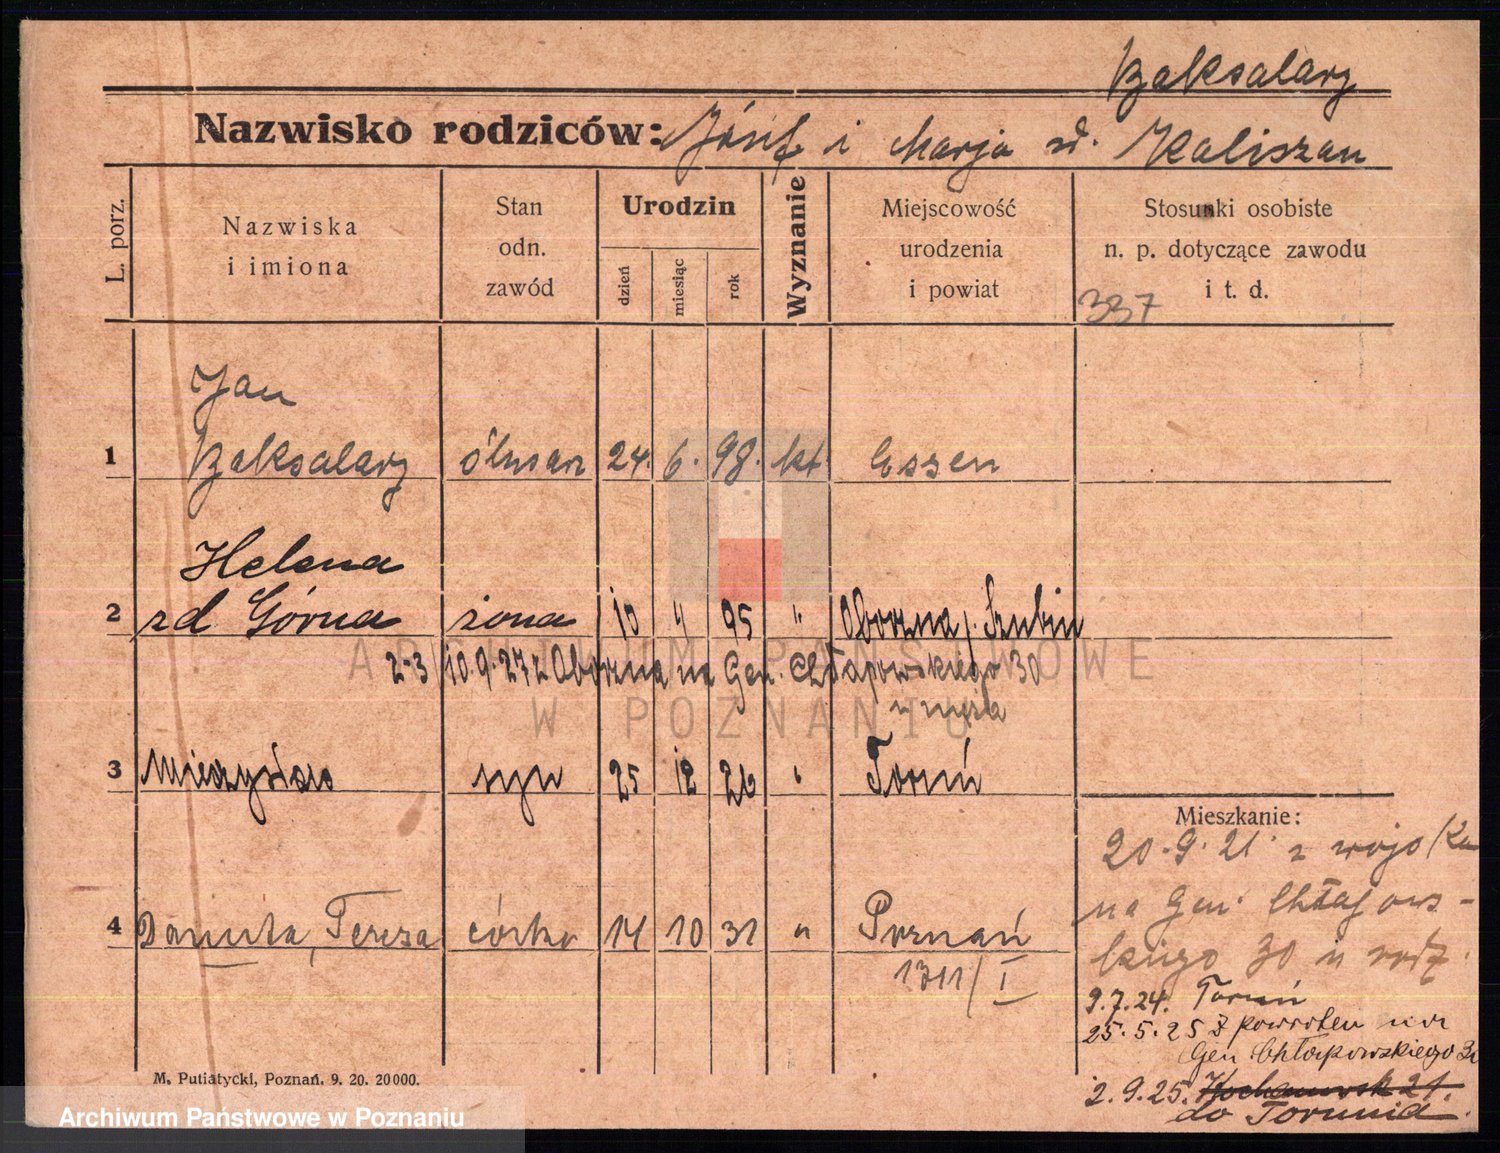 Baksalary
Nazwisko rodziców: Józef i Marja zd. Kaliszan
L. porz.
Nazwiska
i imiona
Stan
odn.
zawód
Urodzin
dzień
miesiąc
rok
Wyznanie
Miejscowość
urodzenia
i powiat
Stosunki osobiste
n. p. dotyczące zawodu
i t. d.
337
Jan
1 Baksalary ślusarz 24. 6. 98. kt. Essen
Helena
2 zd Górna żona 10 4 95 " Oborzna p. Szubin
2-3 10.9.27 z Oborzna na Gen. Chłapowskiego 30
u męża
3 Mieczysław syn 25 12 26 " Toruń
4 Danuta, Teresa córka 14 10 31 " Poznań
1311/I
Mieszkanie:
20.9.21 z wojska
na Gen. Chłapows-
kiego 30 u rodz.
9.7.24. Toruń
25.5.25 z powrotem na
Gen Chłapowskiego 30
2.9.25. 21.
do Torunia
M. Putiatycki, Poznań. 9. 20. 20000.
ARCHIWUM PAŃSTWOWE
W POZNANIU
Archiwum Państwowe w Poznaniu